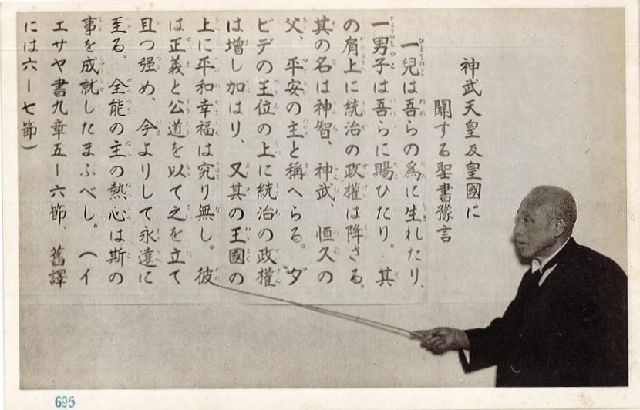 神武天皇及皇國に
關する聖書豫言
一兒は吾らの爲に生れたり、
一男子は吾らに賜ひたり。其
の肩上に統治の政權は降さる。
其の名は神智、神武、恒久の
父、平安の主と稱へらる。ダ
ビデの王位の上に統治の政權
は增し加はり、又其の王國の
上に平和幸福は究り無し。彼
は正義と公道を以て之を立て
且つ强め、今よりして永遠に
至る。全能の主の熱心は斯の
事を成就したまふべし。(イ
エサヤ書九章五ー六節、舊譯
には六ー七節)
695